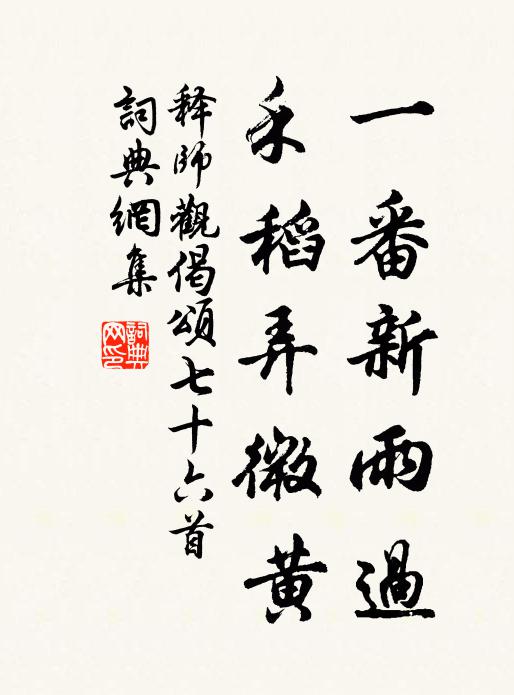 一番新雨過
禾稻弄微黄
释師觀偈頌七十六首
詞典網集
詞典網印